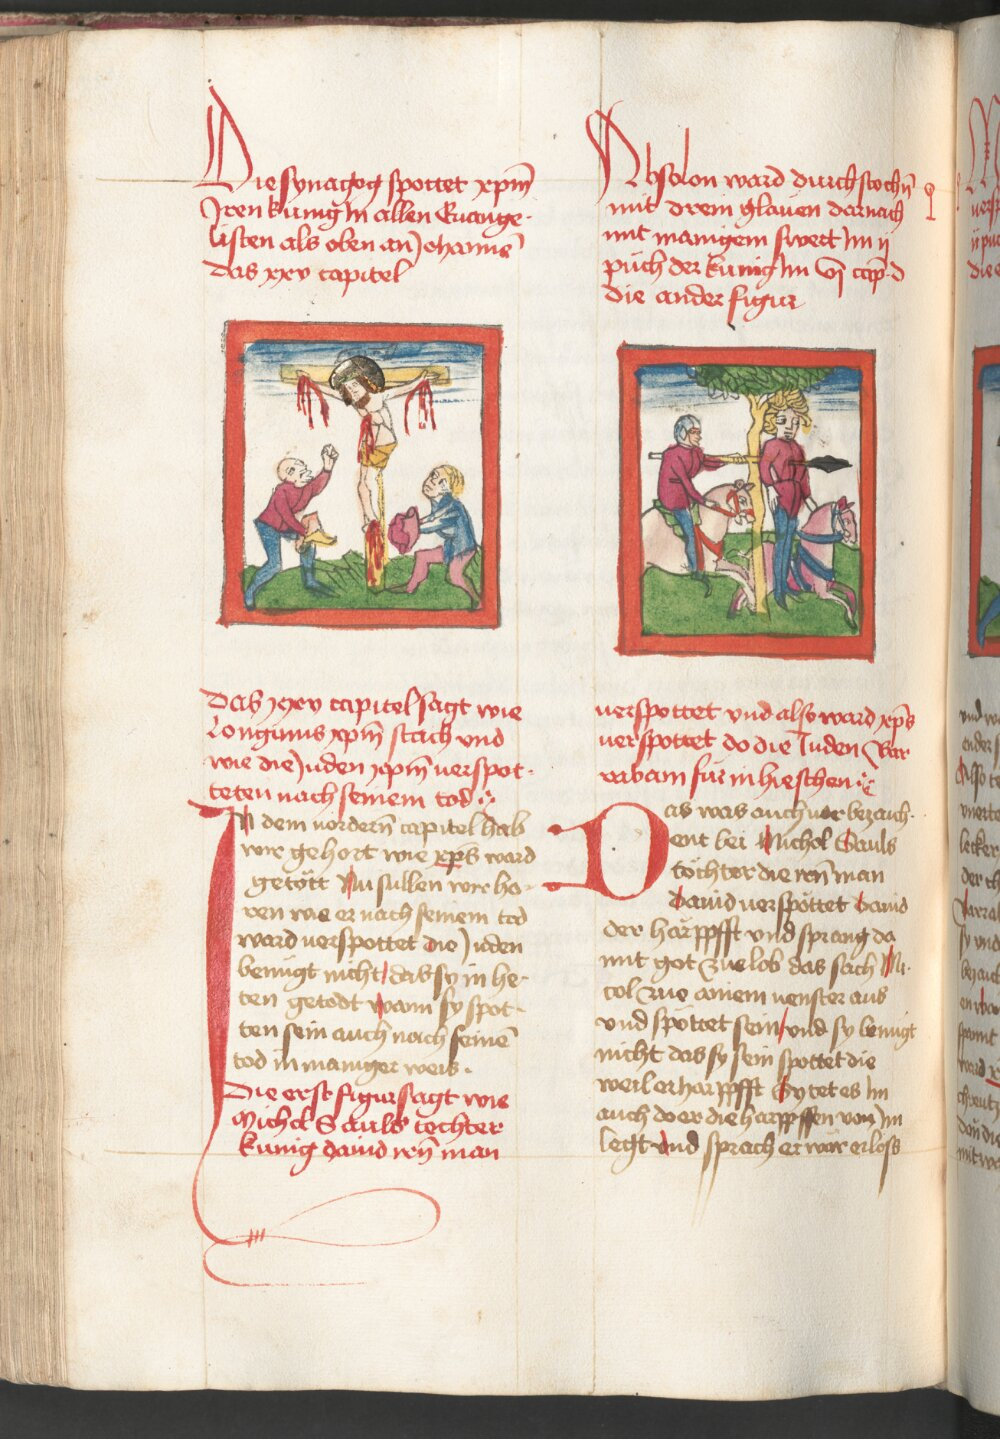 Die synagog spottet xpm̄
Iren kunig In allen Ewange-
listen als oben an Johannē
das xxv capitel
Das xxxv capitel sagt wie
Longinus xpm̄ stach und
wie die Juden xpm̄ verspot-
teten nach seinem tod
In dem vordern̄ capitel hab
wir gehort wie xp̄s ward
getött Nu sullen wir ho-
ren wie er nach seinem tod
ward verspottet die Juden
benugt nicht das sy in he-
ten getodt wann sy spot-
ten sein auch nach seinē
tod in maniger weis
Die erst figur sagt wie
Michol Sauls tochter
kunig dauid irn̄ man
Absolon ward durchstochn̄
mit drein glauen darnach
mit manigem swert Im ij
puch der kunig Im vj cap d
die ander figur
verspottet vnd also ward xp̄s
verspottet do die Juden Bar
rabam für in hieschen
Das was auch vor bezaich-
ent bei Michol Sauls
töchter die irn̄ man
dauid verspöttet dauid
der härpfft vnd sprang da
mit got zue lob das sach Mi-
col zue ainem venster aus
vnd spottet sein vnd sy benugt
nicht das sy sein spottet die
weil er harpfft Sy tet es Im
auch do er die harpffen von Im
legt vnd sprach er wär erloss